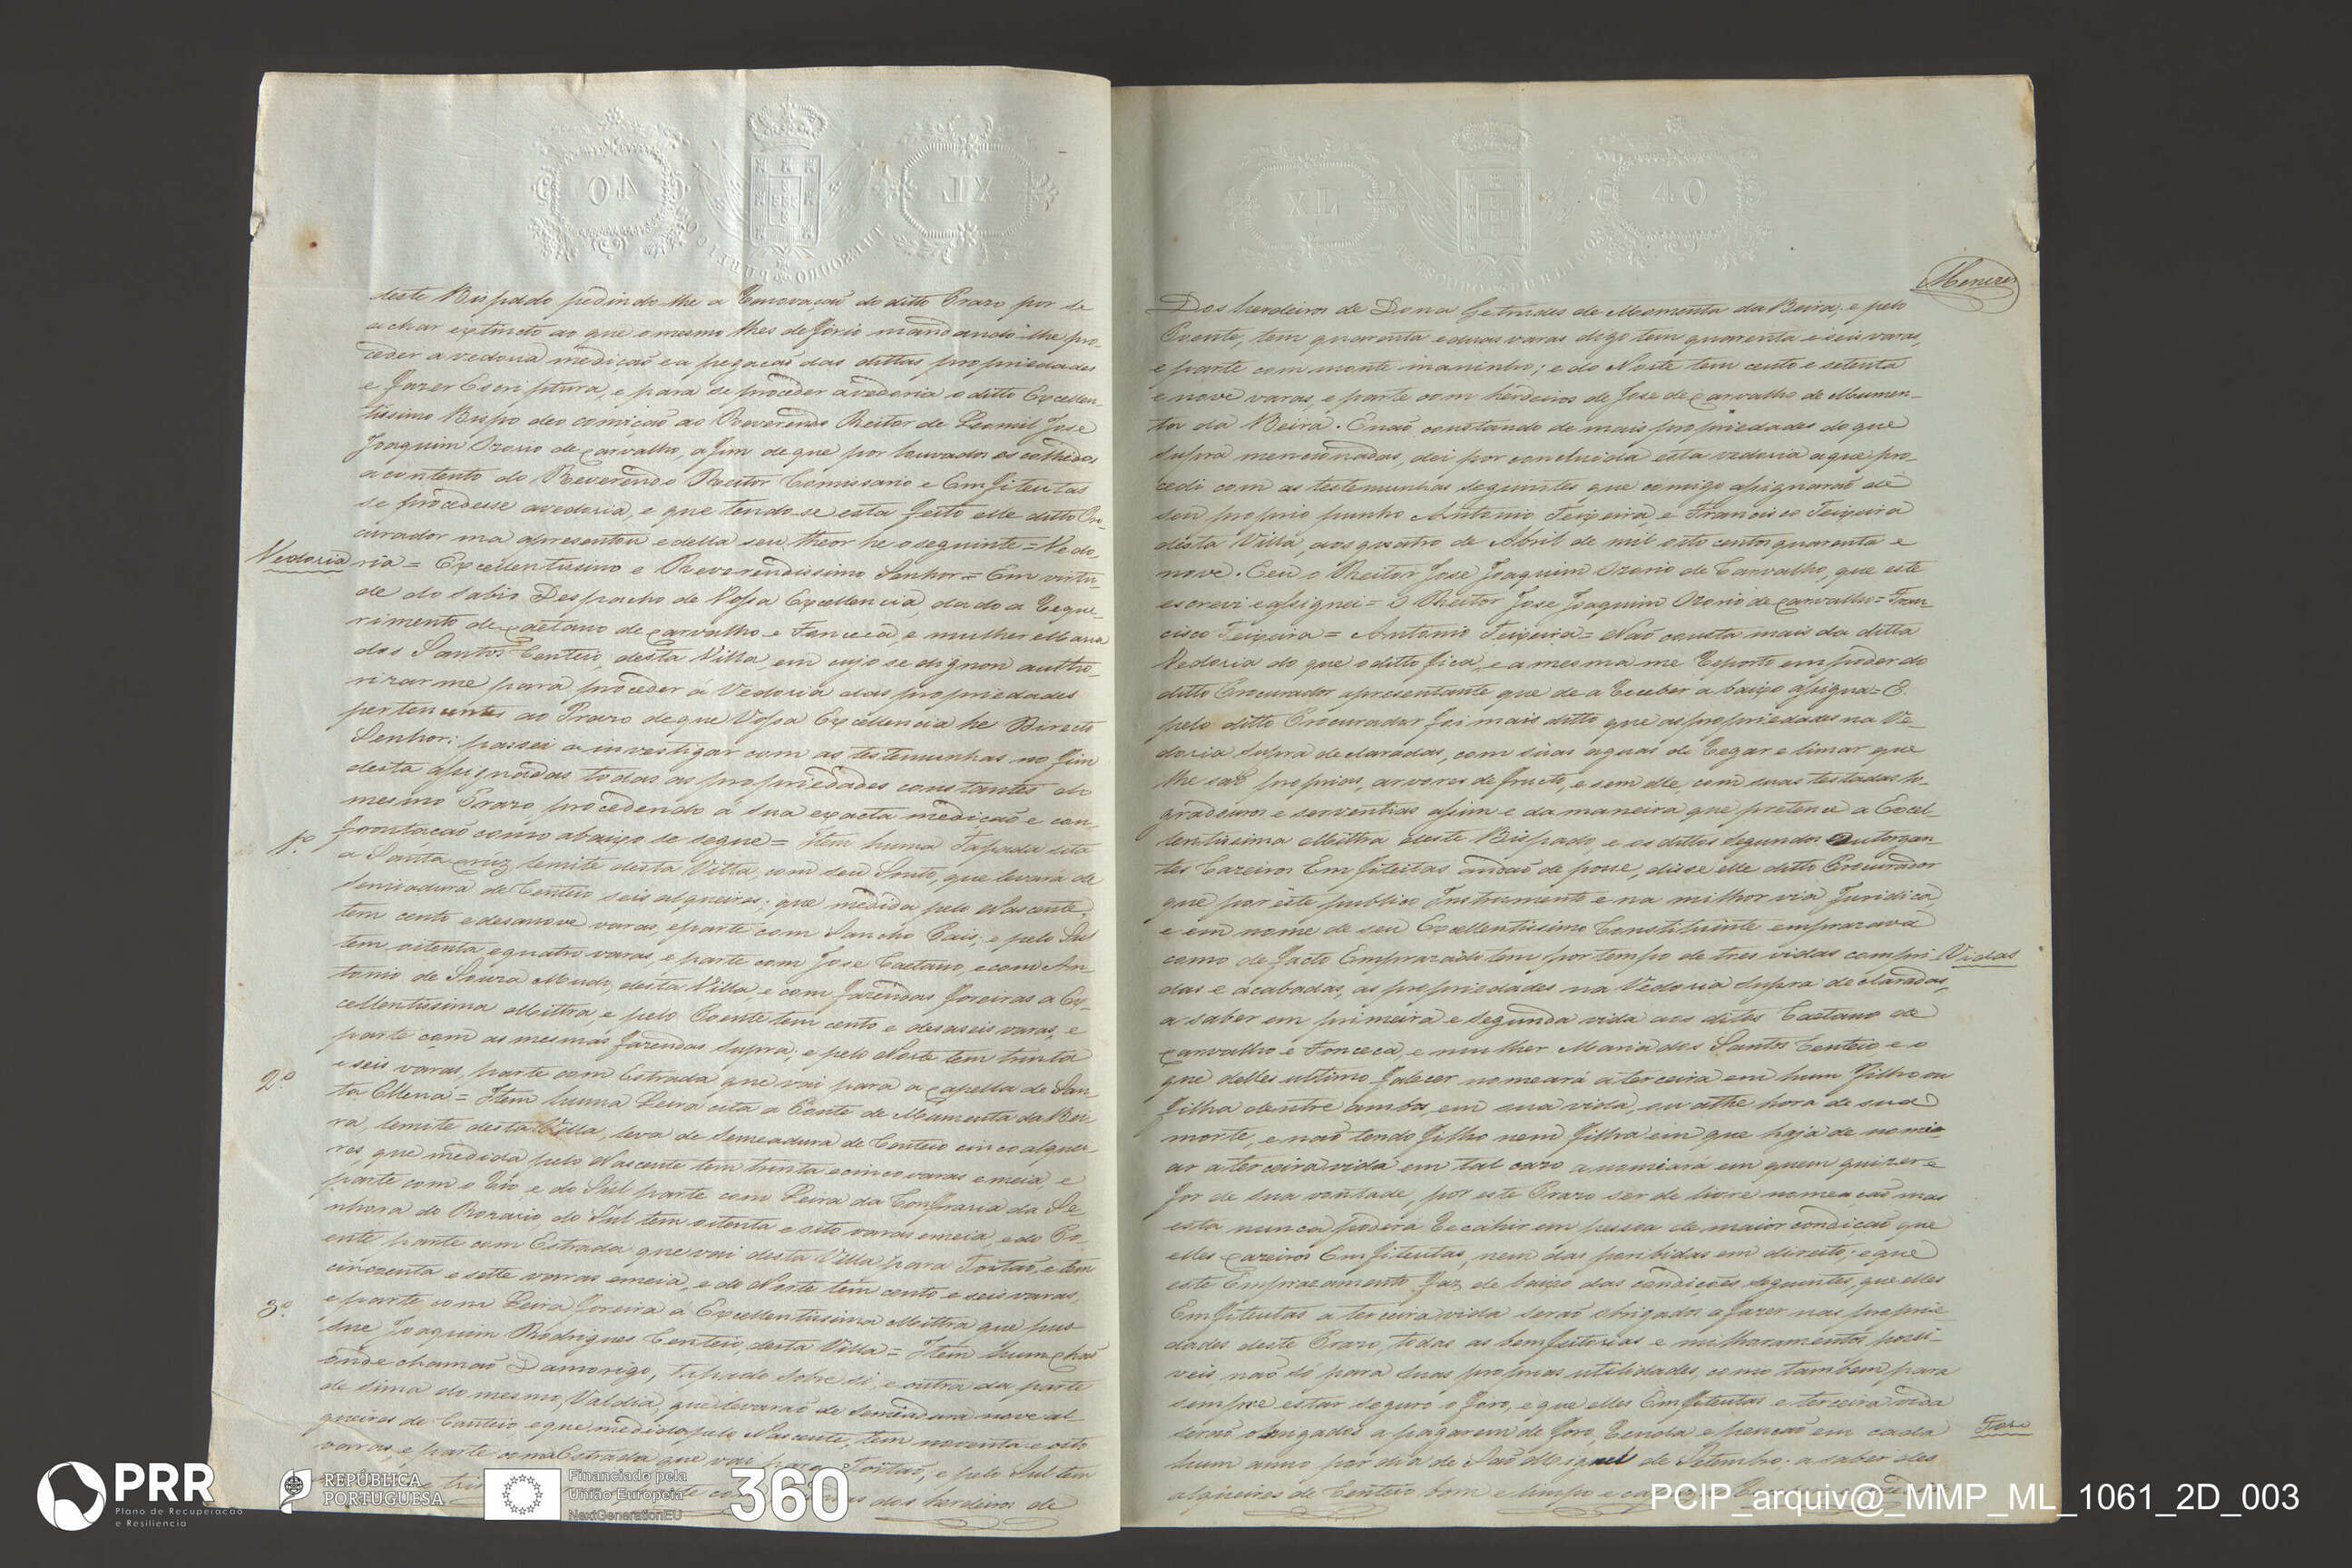 deste Bispado pedindo-lhe a Renovação do ditto Prazo por se
achar extincto ao que o mesmo lhes deferio mandando-lhe pro-
ceder a vedoria medição e a pegação das dittas propriedades
e fazer Escriptura, e para se proceder a vedoria o ditto Excellen-
tissimo Bispo deo comição ao Reverendo Reitor de Leomil Jose
Joaquim Ozorio de Carvalho, a fim de que por louvados escolhidos
a contento do Reverendo Reitor Comissario e Emfiteutas
se procedesse a vedoria, e que tendo-se esta feito elle ditto Pro-
curador ma apresentou e della seu theor he o seguinte = Vedo-
Vedoria
ria = Excellentissimo e Reverendissimo Senhor = Em virtu-
de do Sabio Despacho de Vossa Excellencia, dado a Reque-
rimento de Caetano de Carvalho e Fonceca, e mulher Maria
dos Santos Centeio, desta Villa, em cujo se dignou autho-
rizar me para proceder á Vedoria das propriedades
pertencentes ao Prazo de que Vossa Excellencia he Directo
Senhor: passei a investigar com as testemunhas no fim
desta assignadas todas as propriedades constantes do
mesmo Prazo procedendo á sua exacta medicão e con-
1º
frontação como abaixo se segue = Item huma Tapada sita
a Santa Cruz, lemite desta Villa, com seu Souto, que levará de
Semiadura de Centeio seis alqueires; que medida pelo Nascente,
tem cento e desanove varas, e parte com Sancho Pais; e pelo Sul
tem oitenta e quatro varas, e parte com Jose Caetano, e com An-
tonio de Souza Mudo, desta Villa, e com fazendas foreiras a Ex-
cellentissima Mittra, e pelo Poente tem cento e desaseis varas, e
parte com as mesmas fazendas supra; e pelo Norte tem trinta
e seis varas, parte com Estrada que vai para a Capella de San-
2º
ta Ellena = Item huma Leira cita a Ponte de Mumenta da Bei-
ra, lemite desta Villa, leva de Semeadura de Centeio cinco alquei-
res, que medida pelo Nascente tem trinta e cinco varas e meia, e
parte com o Rio e do Sul parte com Leira da Confraria da Se-
nhora do Rozario, do Sul tem oitenta e oito varas e meia, e do Po-
ente parte com Estrada que vai desta Villa para Toitão, e tem
cincoenta e sette varas e meia, e do Norte tem cento e seis varas,
e parte com Leira foreira á Excellentissima Mittra que pus-
3º
sue Joaquim Rodrigues Centeio, desta Villa = Item hum chão
onde chamão Damorigo, tapado sobre si, e outra da parte
de sima do mesmo, Valdia, que levarão de Semiadura nove al-
queires de Centeio, e que medida pelo Nascente, tem noventa e oito
varas, e parte com a Estrada que vai para Toitão, e pelo Sul tem
dos herdeiros de
Menezes
Dos herdeiros de Dona Getrudes de Moomenta da Beira; e pelo
Poente, tem quarenta e duas varas digo tem quarenta e seis varas,
e parte com monte maninho; e do Norte tem cento e setenta
e nove varas, e parte com herdeiros de Jose de Carvalho de Mumen-
ta da Beira. E não constando de mais propriedades do que
supra mencionadas, dei por concluida esta vedoria a que pro-
cedi com as testemunhas seguintes que comigo assignarão de
seu proprio punho Antonio Teixeira, e Francisco Teixeira
desta Villa, aos quatro de Abril de mil oito centos quarenta e
nove. E eu o Reitor Jose Joaquim Ozorio de Carvalho, que este
escrevi e assignei = O Reitor Jose Joaquim Ozorio de Carvalho = Fran-
cisco Teixeira = Antonio Teixeira = Não consta mais da ditta
Vedoria do que o ditto fica, e a mesma me Reporto em poder do
ditto Procurador apresentante que de a Receber a baixo assigna = E
pelo ditto Procurador foi mais ditto que as propriedades na Ve-
doria supra declaradas, com suas aguas de Regar e limar que
lhe são proprias, arvores de fructo, e sem elle, com suas testadas lo-
gradouros e serventias assim e da maneira que pretence a Excel-
lentissima Mittra deste Bispado, e os dittos segundos Outorgan-
tes Cazeiros Emfiteitas andão de posse, disse elle ditto Procurador
que por este publico Instrumento e na milhor via Juridica,
e em nome de seu Excellentissimo Constituinte emprazava
como de facto Emprazado tem por tempo de tres vidas compri-
Vidas
das e acabadas, as propriedades na Vedoria supra declaradas,
a saber em primeira e segunda vida aos ditos Caetano de
Carvalho e Fonceca, e mulher Maria dos Santos Centeio, e o
que delles ultimo falecer nomeará a terceira em hum filho ou
filha dentre ambos, em sua vida, ou athe hora de sua
morte, e não tendo filho nem filha em que haja de nomie-
ar a terceira vida em tal cazo a nomiará em quem quizer e
for de sua vontade, por este Prazo ser de livre nomeação mas
esta nunca poderá Recahir em pessoa de maior condição que
elles Cazeiros Emfiteutas, nem das peribidas em direito; e que
este Emprazamento faz de baixo das condições seguintes, que elles
Emfiteutas a terceira vida serão obrigados a fazer nas proprie-
dades deste Prazo, todas as bemfeitorias e milhoramentos possi-
veis, não só para suas proprias utilidades, como tambem para
sempre estar seguro o foro, e que elles Emfiteutas e terceira vida
Foro
serão obrigados a pagarem de foro, Renda e penção em cada
hum anno por dia de São Miguel de Setembro. a saber des
alqueires de Centeio bom e limpo e
PRR
Plano de Recuperação
e Resiliência
REPÚBLICA
PORTUGUESA
Financiado pela
União Europeia
NextGenerationEU
360°
PCIP_arquiv@_MMP_ML_1061_2D_003